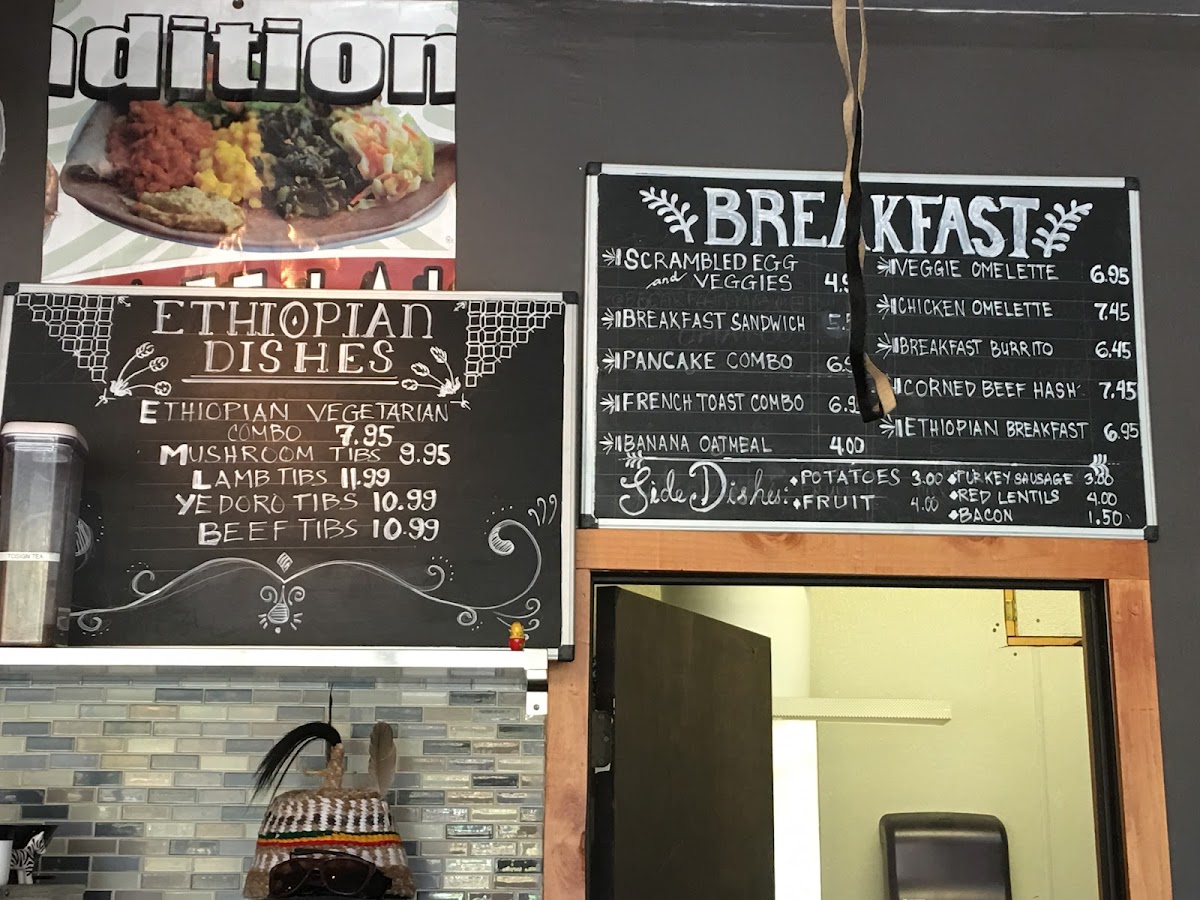 dition
ETHIOPIAN
DISHES
ETHIOPIAN VEGETARIAN
COMBO 7.95
MUSHROOM TIBS 9.95
LAMB TIBS 11.99
YEDORO TIBS 10.99
BEEF TIBS 10.99
BREAKFAST
SCRAMBLED EGG
and VEGGIES
BREAKFAST SANDWICH
PANCAKE COMBO
FRENCH TOAST COMBO
BANANA OATMEAL 4.00
VEGGIE OMELETTE 6.95
CHICKEN OMELETTE 7.45
BREAKFAST BURRITO 6.45
CORNED BEEF HASH 7.45
ETHIOPIAN BREAKFAST 6.95
Side Dishes:
POTATOES 3.00
FRUIT 4.00
TURKEY SAUSAGE 3.00
RED LENTILS 4.00
BACON 1.50